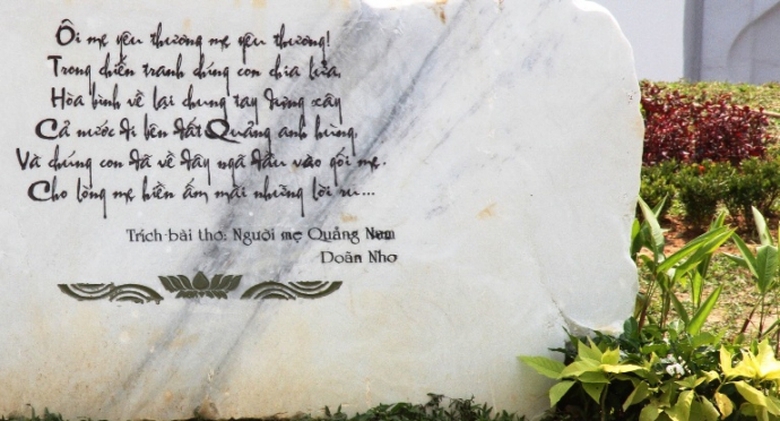 Ôi mẹ yêu thương mẹ yêu thương!
Trong chiến tranh chúng con chia lửa,
Hòa bình về lại chung tay dựng xây
Cả nước đi bên đất Quảng anh hùng,
Và chúng con đã về đây ngã đầu vào gối mẹ.
Cho lòng mẹ hiền ấm mãi những lời ru...
Trích bài thơ: Người mẹ Quảng Nam
Doãn Nho